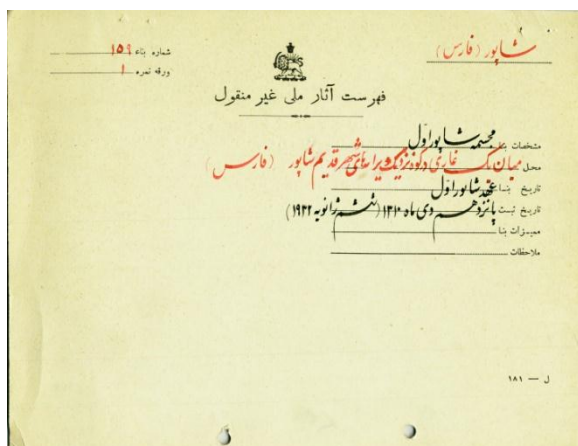 شاپور (فارس)
شماره بناء ۱۵۹
ورقه نمره ۱
فهرست آثار ملی غیر منقول
مشخصات بنا مجسمه شاپور اول
محل میان یک غاری در کوه نزدیک ویرانه‌های شهر قدیم شاپور (فارس)
تاریخ بنا عهد شاپور اول
تاریخ ثبت پانزدهم دی ماه ۱۳۱۰ (ششم ژانویه ۱۹۳۲)
ممیزات بنا
ملاحظات
ل — ۱۸۱